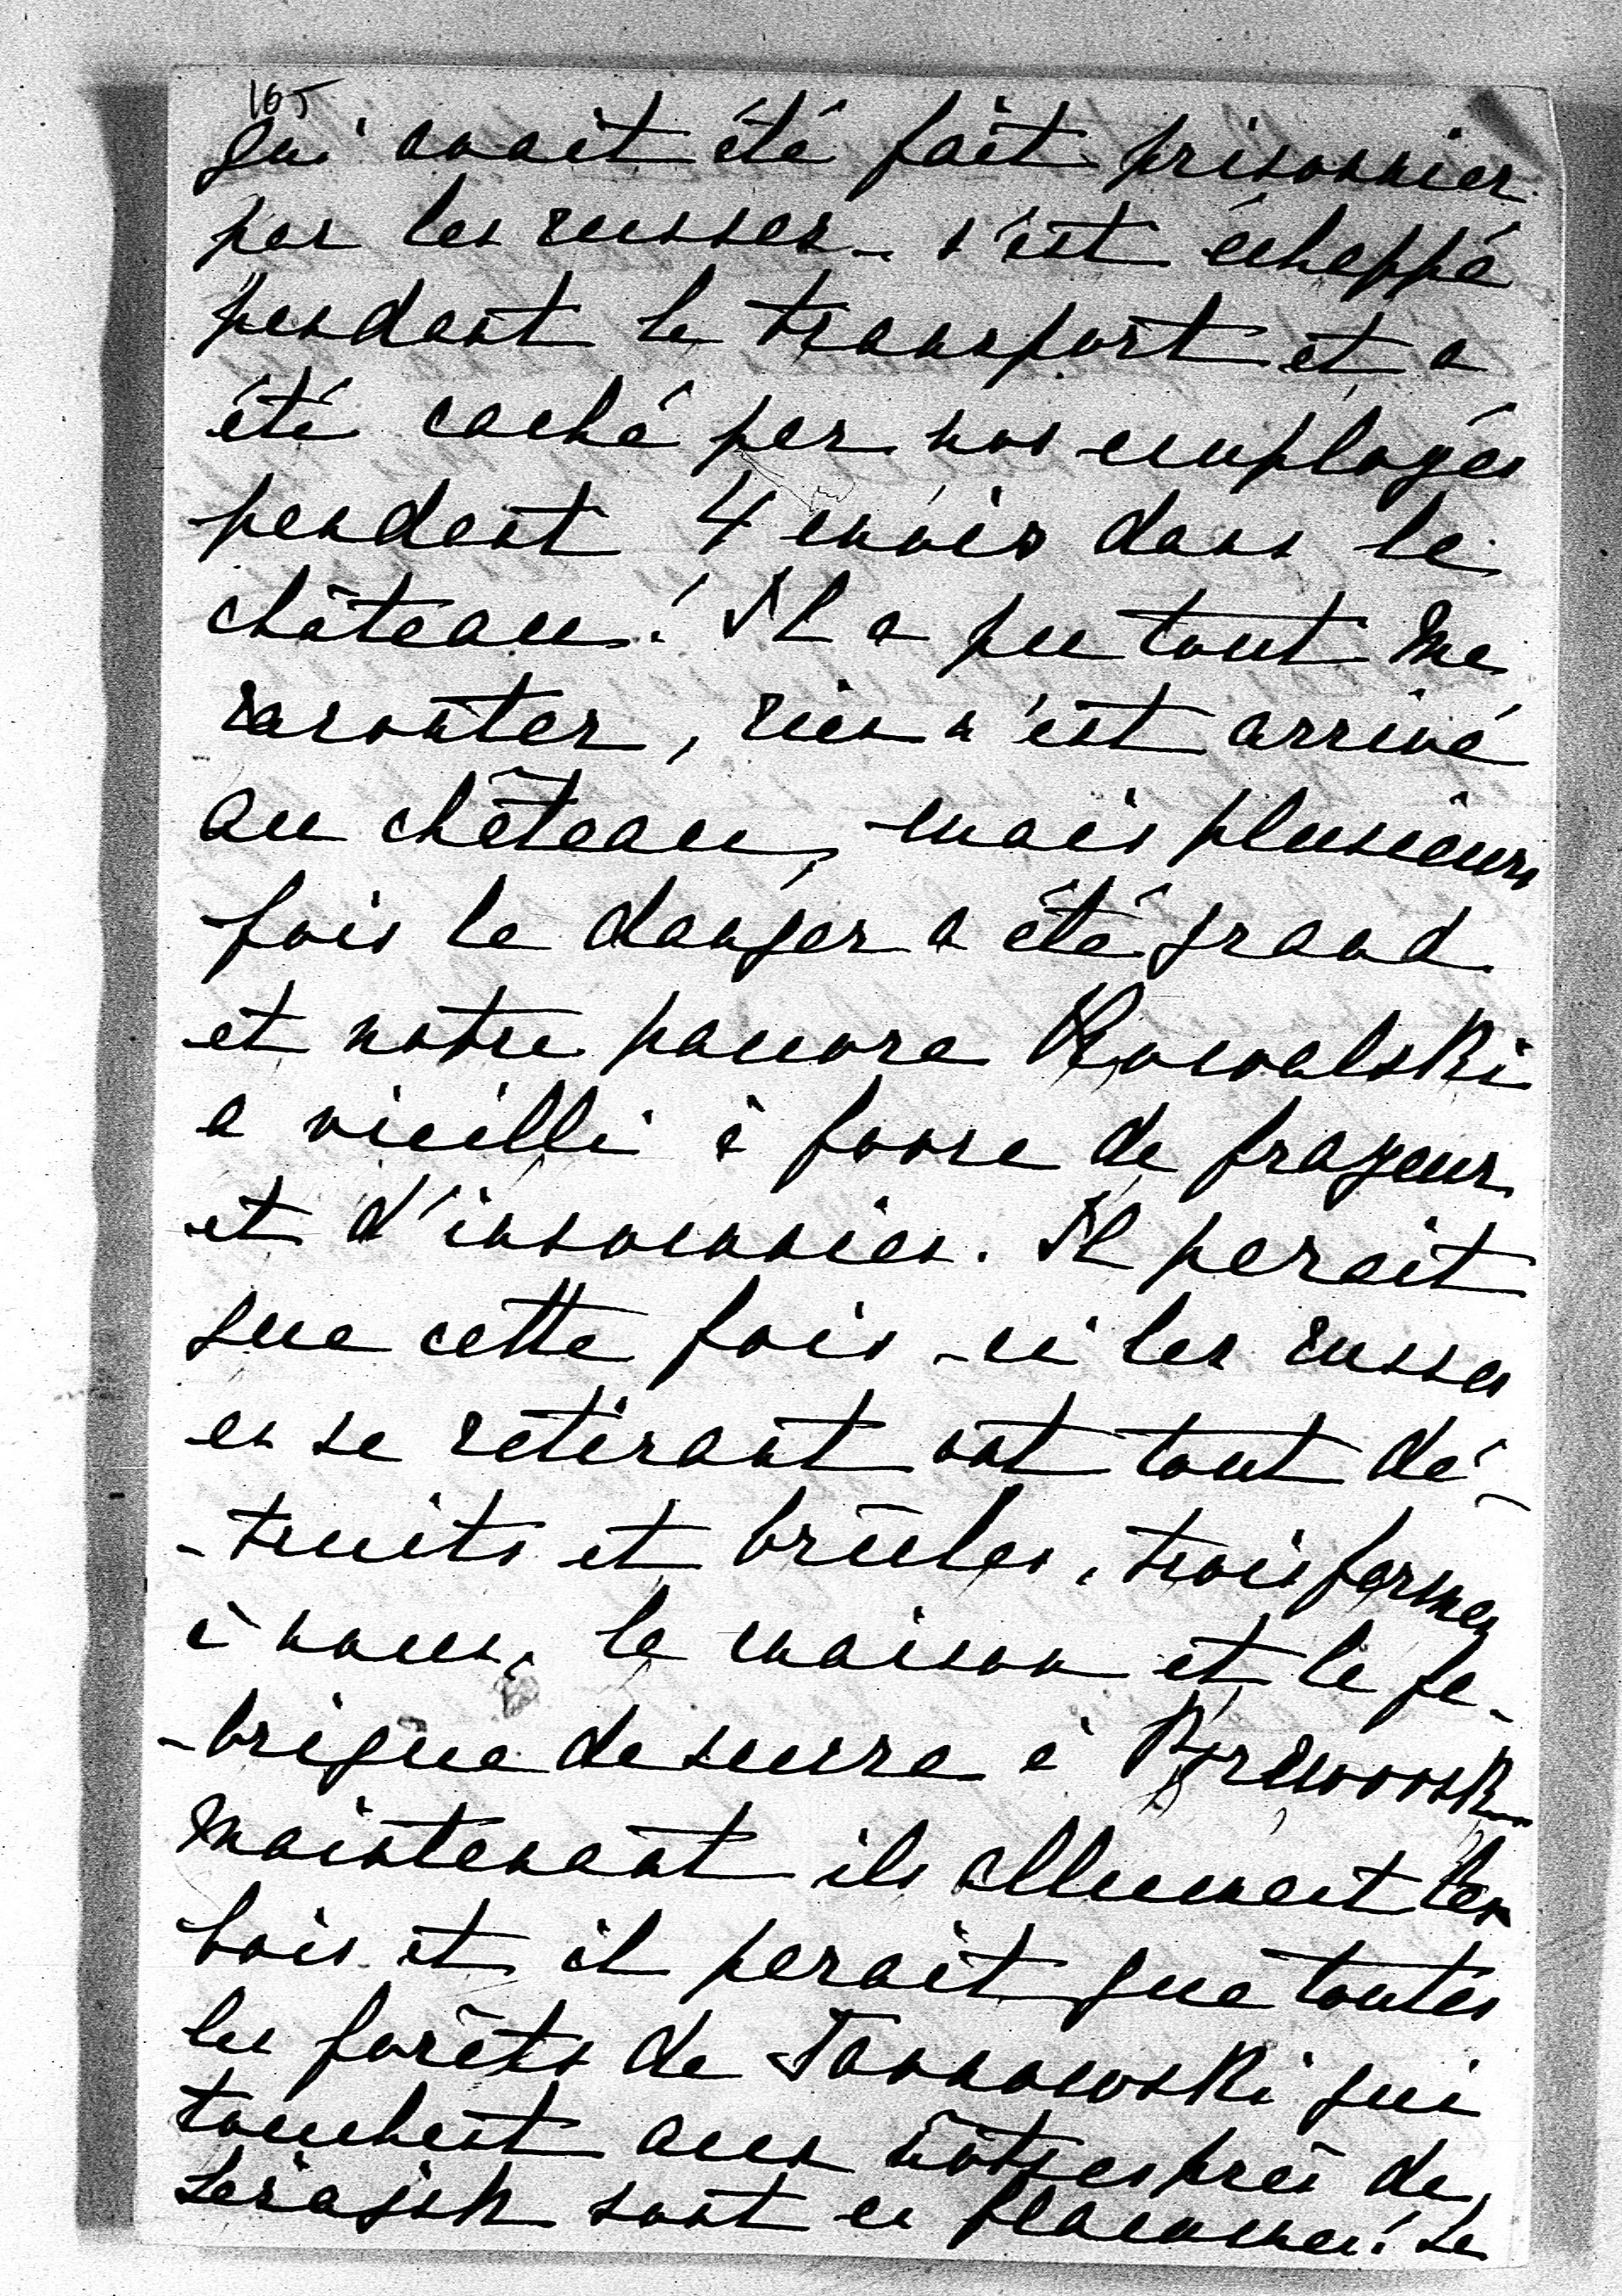 165
qui avait été fait prisonnier
par les russes - s'est échappé
pendant le transport et a
été caché par nos employés
pendant 4 mois dans le
château! Il a pu tout me
raconter, rien n'est arrivé
au château, mais plusieurs
fois le danger a été grand
et notre pauvre Kowalski
a vieilli à force de frayeur
et d'insomnies. Il parait
que cette fois-ci les russes
en se retirant ont tout dé-
-truits et brûles, trois fermes
à nous, la maison et la fa-
-brique de sucre à
maintenant ils allument les
bois et il parait que toutes
les forêts de Tarnowski qui
touchent aux nôtres près de
sont en flammes! Le